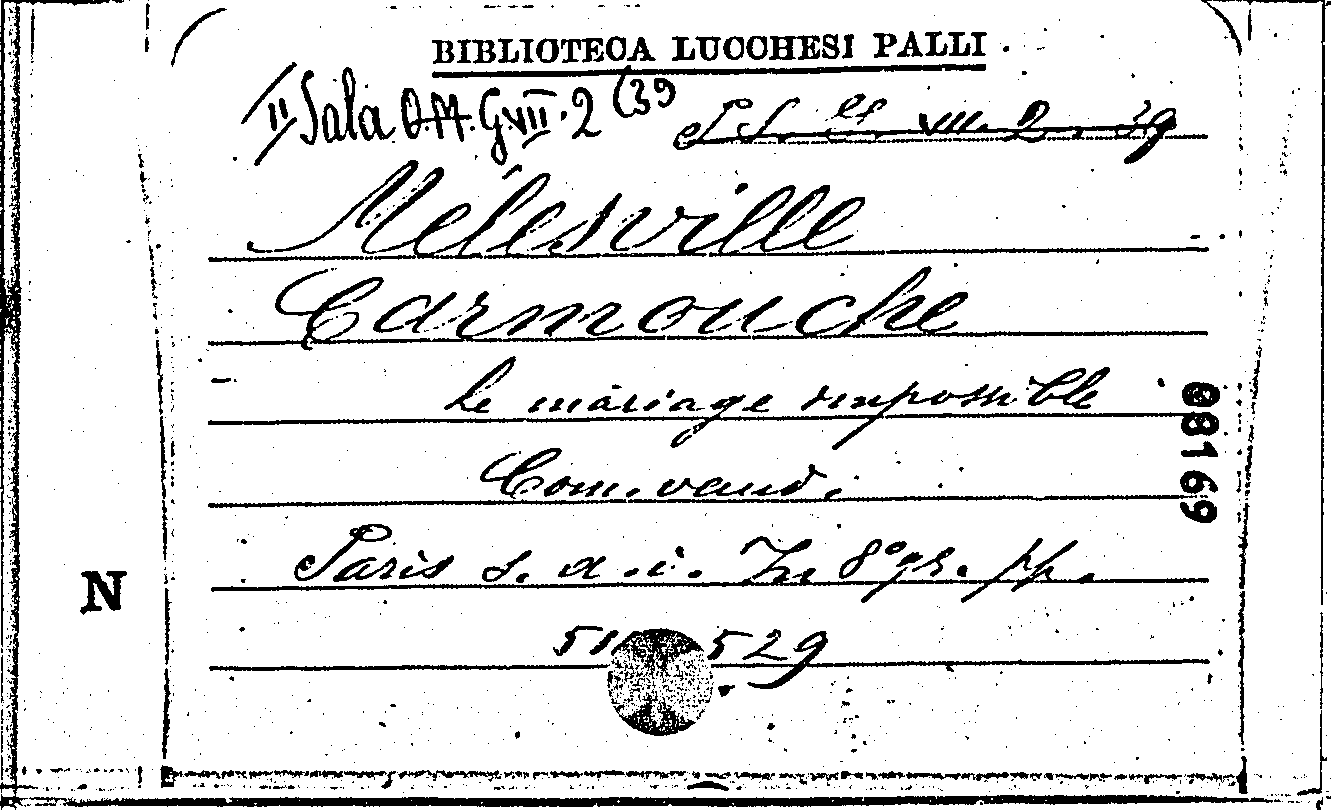 BIBLIOTECA LUCCHESI PALLI
II Sala O.M. G.VII.2 (39
VII. 2. 39
Mélesville
Carmouche
le mariage impossible
Com. vaud.
Paris s. a. i. In 8° gr. pp.
51 529
08169
N